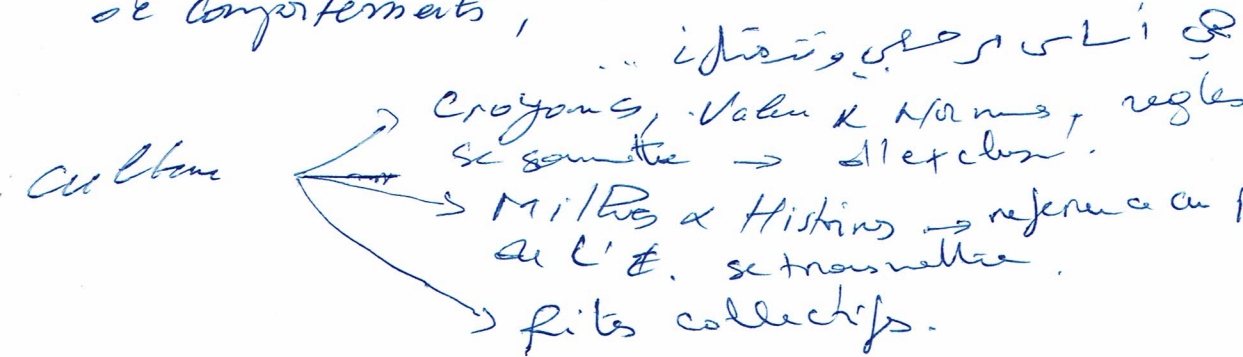 de comportements,
هي أساس مرجعي وتتمثل ...
Croyances, Valeu & Normes, regles
se soumettre → d'exclusion.
culture
Mythes & Histoires → reference au
de l'E. se transmettre.
Rites collectifs.